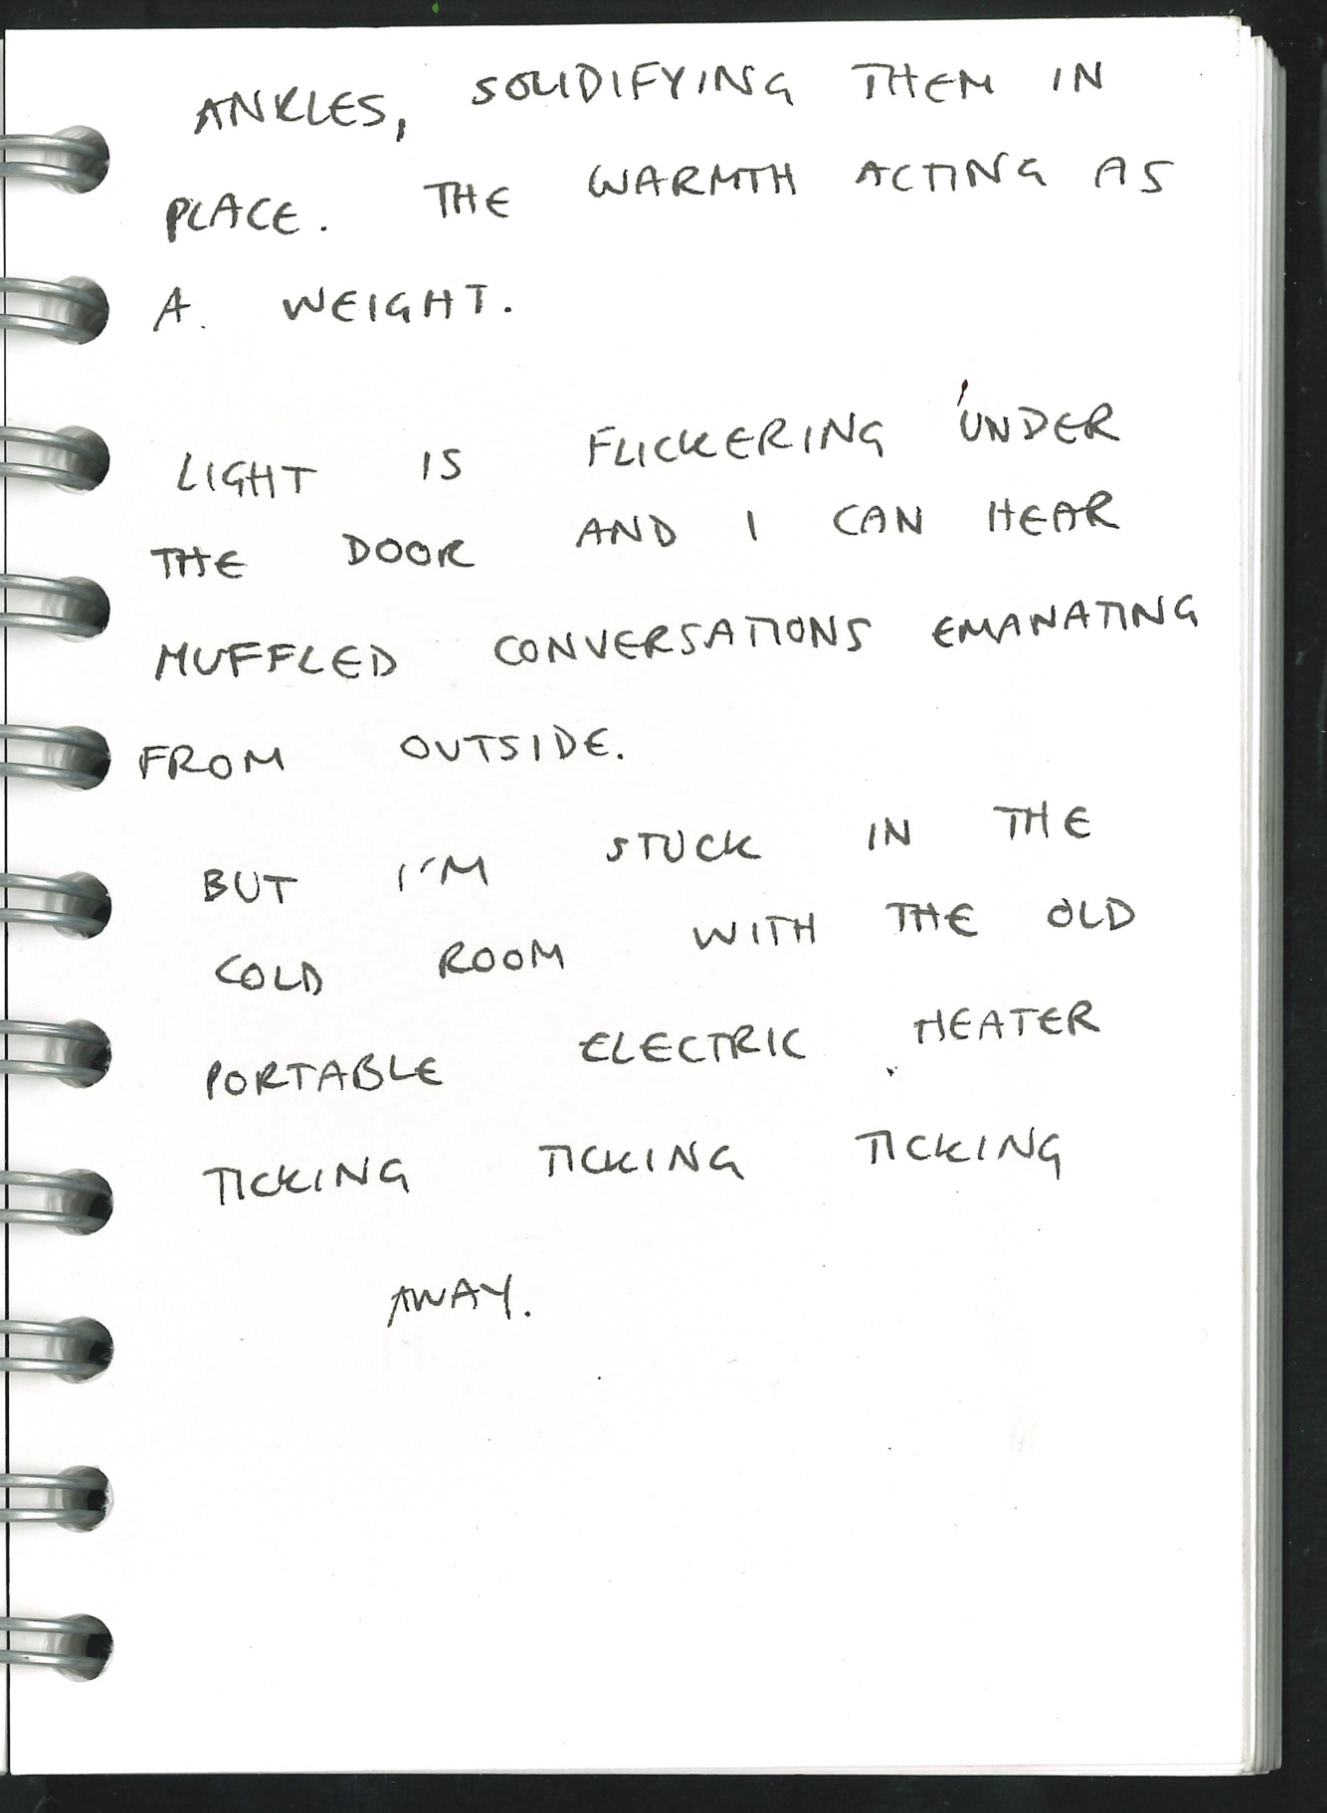 ANKLES, SOLIDIFYING THEM IN
PLACE. THE WARMTH ACTING AS
A WEIGHT.
LIGHT IS FLICKERING UNDER
THE DOOR AND I CAN HEAR
MUFFLED CONVERSATIONS EMANATING
FROM OUTSIDE.
BUT I'M STUCK IN THE
COLD ROOM WITH THE OLD
PORTABLE ELECTRIC HEATER
TICKING TICKING TICKING
AWAY.